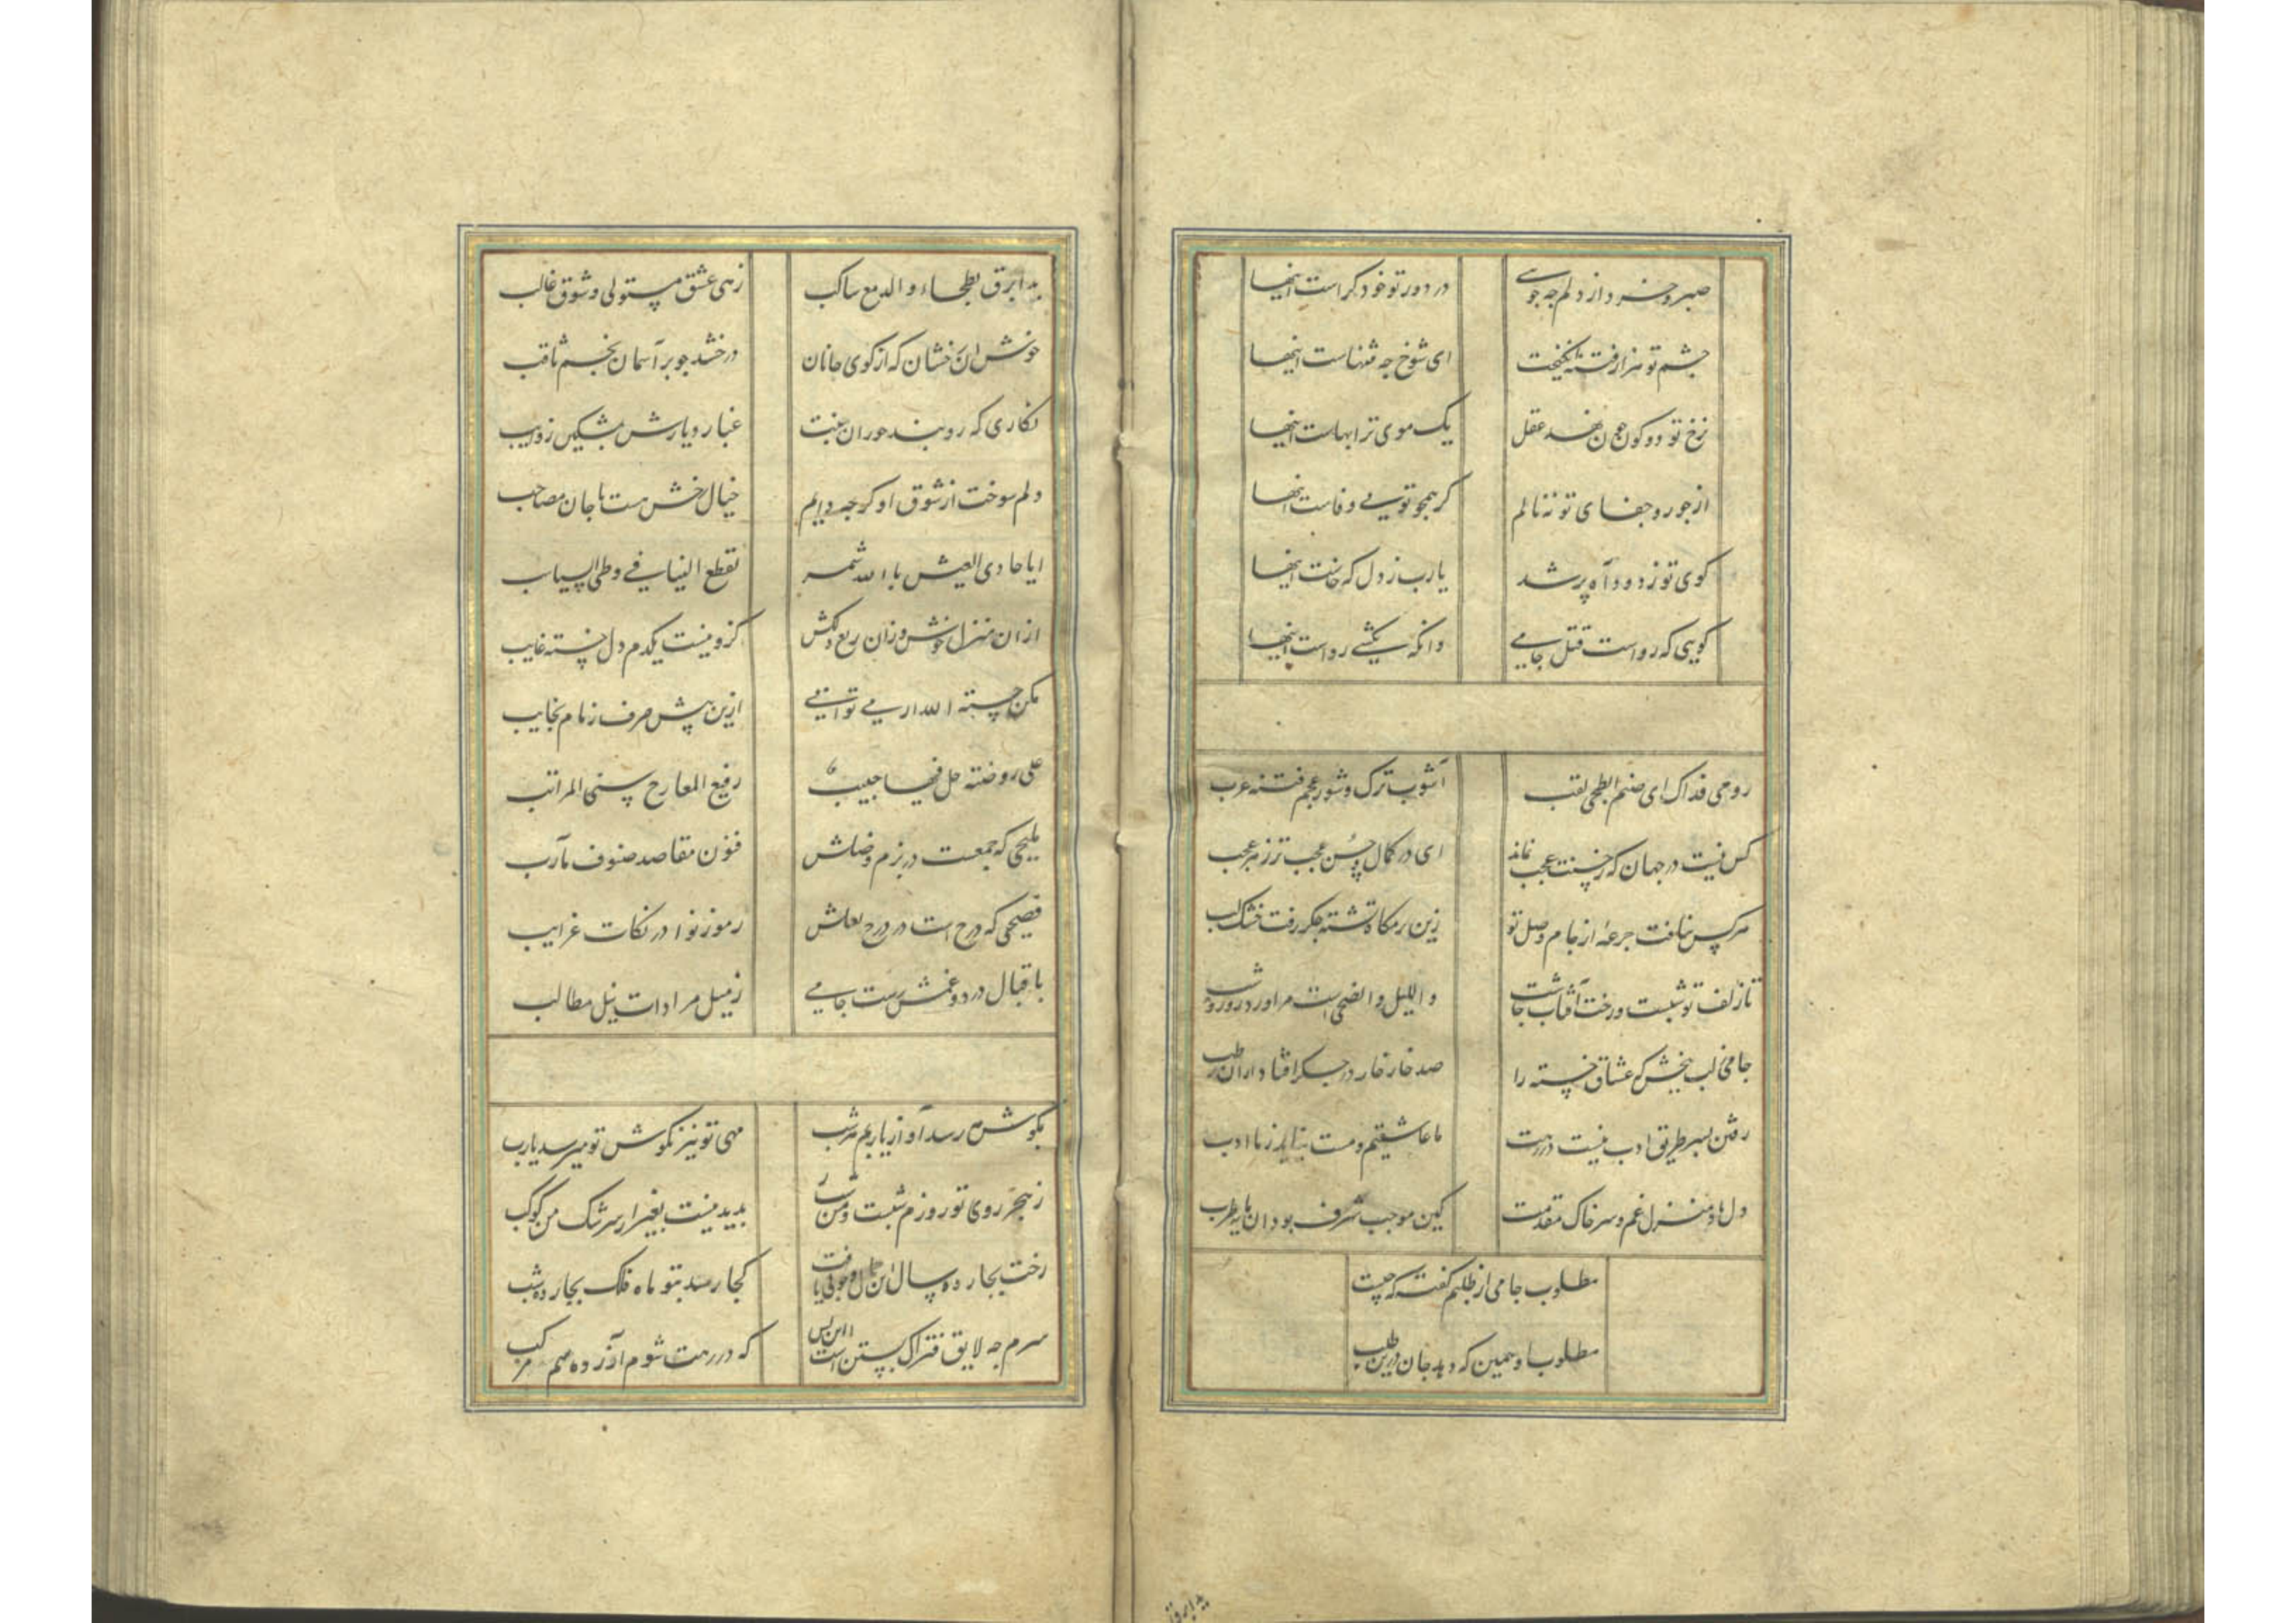 صبر و خرد از دلم چه جویی
در دور تو خود کراست اینها
چشم تو هزار فتنه انگیخت
ای شوخ چه فتنهاست اینها
نرخ تو دو کون چون نهد عقل
یک موی ترا بهاست اینها
از جور و جفای تو ننالم
گر همچو تویی وفاست اینها
کوی تو ز دود آه پر شد
یارب ز دل که خاست اینها
گویی که رواست قتل جامی
وانگه نکشی رواست اینها
روحی فداک ای صنم ابطحی لقب
آشوب ترک و شور عجم فتنه عرب
کس نیست در جهان که ز حسنت عجب نماند
ای در کمال حسن عجب تر ز هر عجب
هر کس نیافت جرعهٔ از جام وصل تو
زین بزمگاه تشنه جگر رفت خشک لب
تا زلف تو شبست و رخت آفتاب چاشت
واللیل والضحی است مرا ورد روز و شب
کامی ز لب ببخش که عشاق خسته را
صد خار خار در جگر افتاد ازان رطب
رفتن بسر طریق ادب نیست در رهت
ما عاشقیم و مست نیاید ز ما ادب
دل باد منزل غم و سر خاک مقدمت
کین موجب شرف بود آن مایهٔ طرب
مطلوب جامی از طلبم گفته که چیست
مطلوب او همین که دهد جان درین طلب
بدا برق بطحاء والدمع ساکب
زهی عشق مستولی و شوق غالب
خوش آن رخشان که از کوی جانان
درخشد چو بر آسمان نجم ثاقب
نگاری که روبند حوران جنت
غبار دیارش بمشکین ذوایب
دلم سوخت از شوق او گرچه دایم
خیال رخش هست با جان مصاحب
ایا حادی العیس بالله شمر
تقطع الفیافی وطی السباسب
ازان منزل خوش وزان ربع دلکش
کزو نیست یکدم دل خسته غایب
مکن حسبة الله ار می توانی
ازین بیش صرف زمام نجایب
علی روضة حل فیها حبیب
رفیع المعارج سنی المراتب
ملیحی که جمعست در بزم وصلش
فنون مقاصد صنوف مآرب
فصیحی که درج است در درج لعلش
رموز نوادر نکات غرایب
باقبال درد و غمش رست جامی
ز میل مرادات و نیل مطالب
بگوش میرسد آواز یاربم هر شب
مهی تو نیز بگوش تو میرسد یارب
ز هجر روی تو روزم شبست و من شب
پدید نیست بغیر از سرشک من کوکب
رخت بچارده سال این جمال و خوبی یافت
کجا رسد بتو ماه فلک بچارده شب
سرم چه لایق فتراک بستن است این بس
که در رهت شوم آزرده سم مرکب
بدا برق